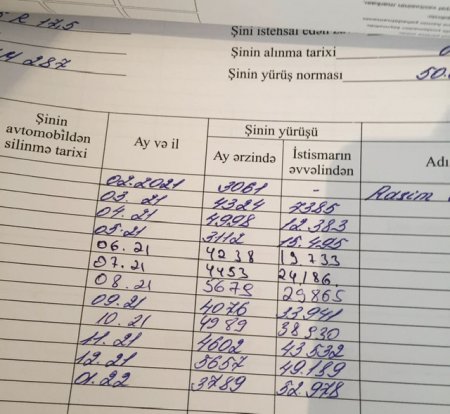 R 17,5
Şini istehsal edən
Şinin alınma tarixi
287
Şinin yürüş norması 50.
Şinin avtomobildən silinmə tarixi
Ay və il
Şinin yürüşü
Ay ərzində
İstismarın əvvəlindən
Adı
02.2021 3061 - Rasim
03.21 4324 7385
04.21 4998 12.383
05.21 3112 15.495
06.21 4238 19.733
07.21 4453 24,186.
08.21 5679 29865
09.21 4076 33941
10.21 4989 38930
11.21 4602 43532
12.21 5657 49.189
01.22 3789 52.978